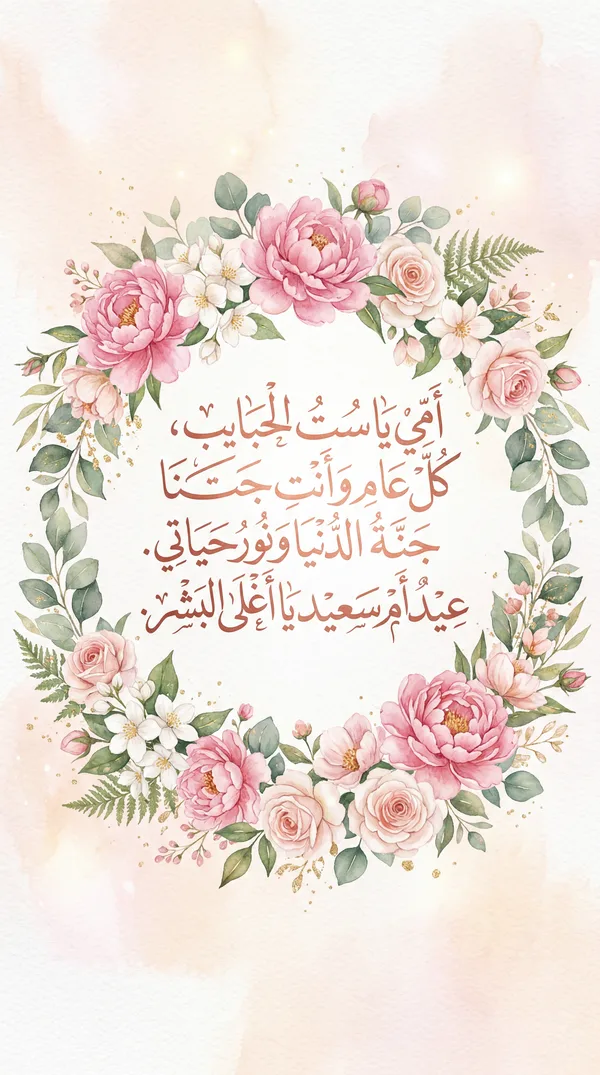 أُمِّي يَا سُتُ الْحَبَايِب،
كُلّ عَام وَأَنْتِ جَتَنَا
جَنَّةُ الدُّنْيَا وَنُورُ حَيَاتِي.
عِيدُ أُم سَعِيد يَا أَغْلَى الْبَشَر.